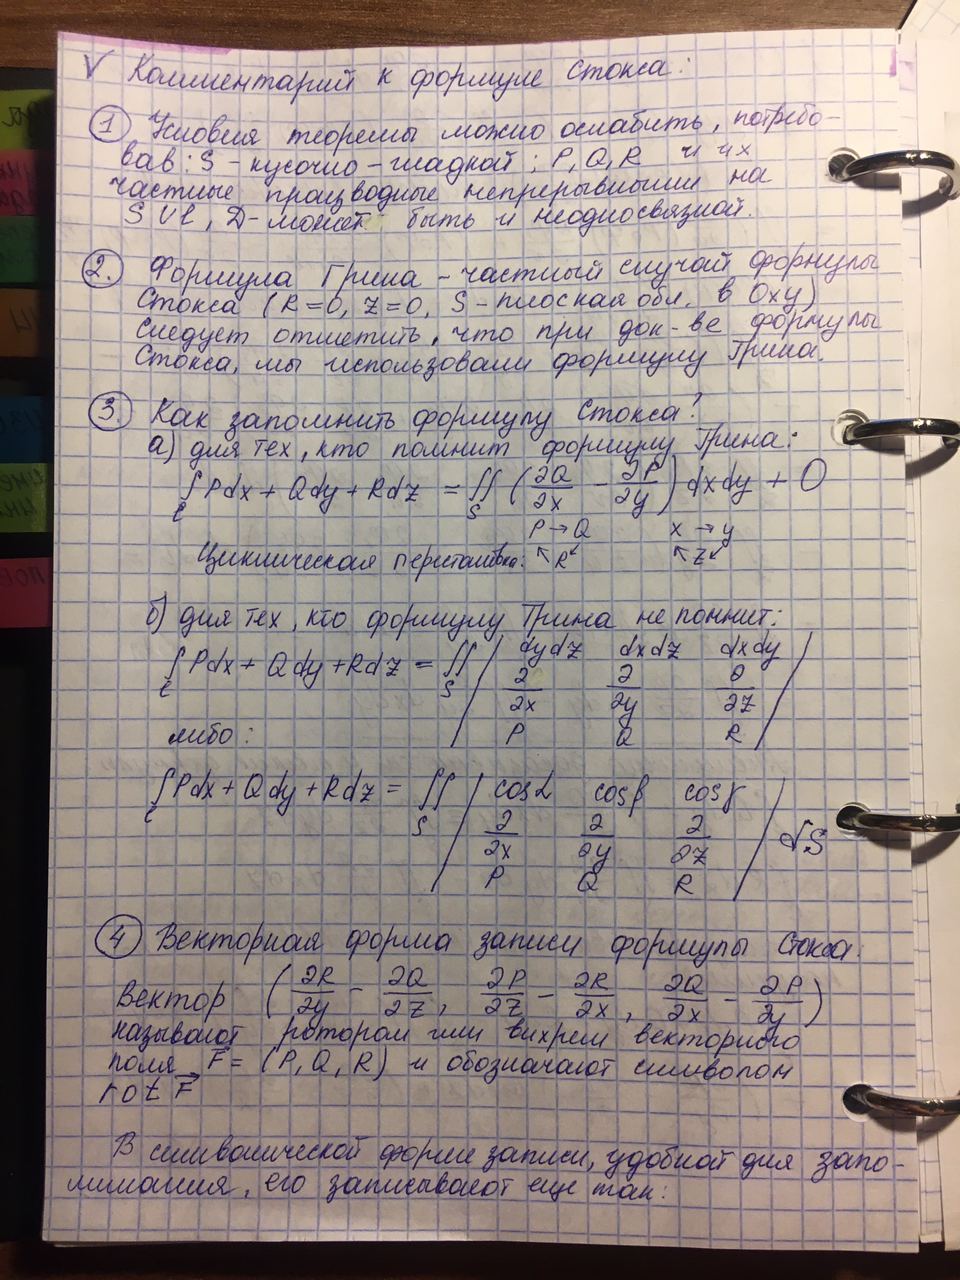 V Комментарий к формуле Стокса:
① Условия теоремы можно ослабить, потребо-
вав: S - кусочно-гладкой; P, Q, R и их
частные производные непрерывными на
S ∪ ℓ, D - может быть и неодносвязной.
②. Формула Грина - частный случай формулы
Стокса (R=0, z=0, S - плоская обл. в Oxy)
Следует отметить, что при док-ве формулы
Стокса, мы использовали формулу Грина.
③. Как запомнить формулу Стокса?
а) для тех, кто помнит формулу Грина:
∫ℓ Pdx + Qdy + Rdz = ∬S (∂Q/∂x - ∂P/∂y) dxdy + 0
P → Q x → y
Циклическая перестановка: ↖ R ↙ ↖ z ↙
б) для тех, кто формулу Грина не помнит:
∫ℓ Pdx + Qdy + Rdz = ∬S | dydz dxdz dxdy
∂/∂x ∂/∂y ∂/∂z
P Q R |
либо:
∫ℓ Pdx + Qdy + Rdz = ∬S | cosα cosβ cosγ
∂/∂x ∂/∂y ∂/∂z
P Q R | dS
④ Векторная форма записи формулы Стокса.
Вектор (∂R/∂y - ∂Q/∂z, ∂P/∂z - ∂R/∂x, ∂Q/∂x - ∂P/∂y)
называют ротором или вихрем векторного
поля F⃗ = (P, Q, R) и обозначают символом
rot F⃗
В символической форме записи, удобной для запо-
минания, его записывают еще так: